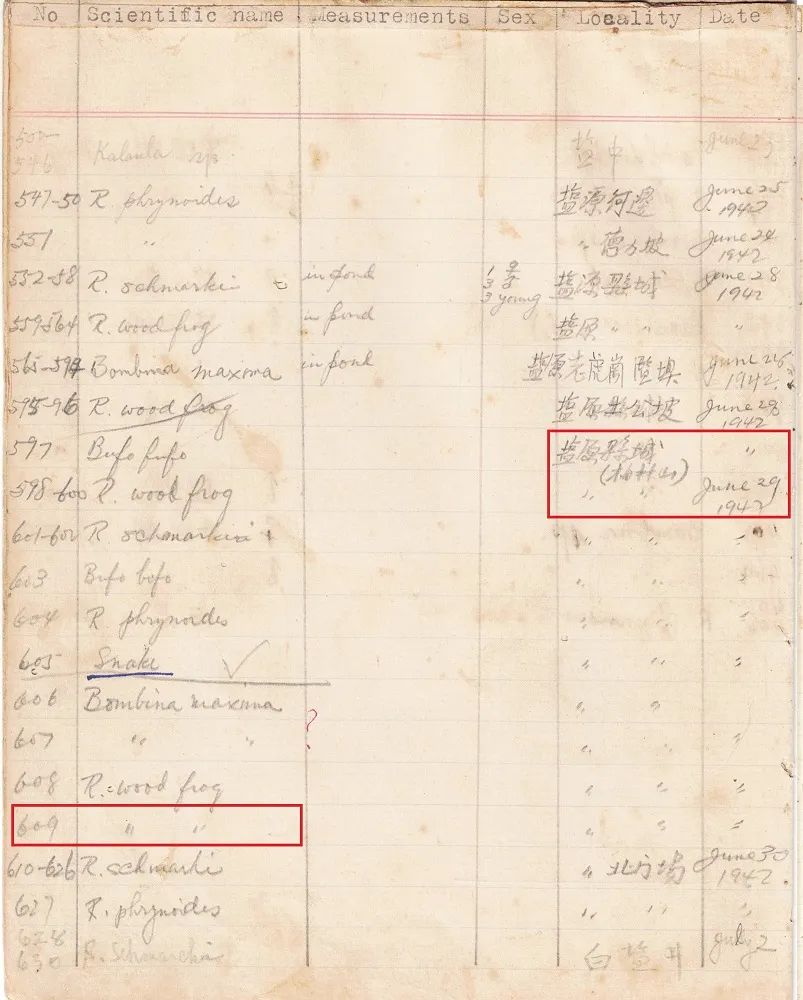 No Scientific name Measurements Sex Locality Date
500-
546 Kaloula sp. 盐中 June 23
547-50 R. phrynoides 盐源河邊 June 25
1942
551 " " 德力坡 June 24
1942
552-58 R. schmarki in pond 1 ♀
3 ♂
3 young 盐源縣城 June 28
1942
559-564 R. wood frog in pond 盐源 " " "
565-594 Bombina maxima in pond 盐源老虎崗 June 26
1942.
595-96 R. wood frog 盐源 公坡 June 28
1942
597 Bufo bufo 盐源縣城 "
598-600 R. wood frog " " June 29
1942
601-602 R. schmarki " " "
603 Bufo bofo " " "
604 R. phrynoides " " "
605 Snake ✓ " " "
606 Bombina maxima " " "
607 " " ? " " "
608 R. wood frog " " "
609 " " " " "
610-626 R. schmarki " 北 場 June 30
1942.
627 R. phrynoides " " "
628
630 R. Schmarki 白盐井 July 2